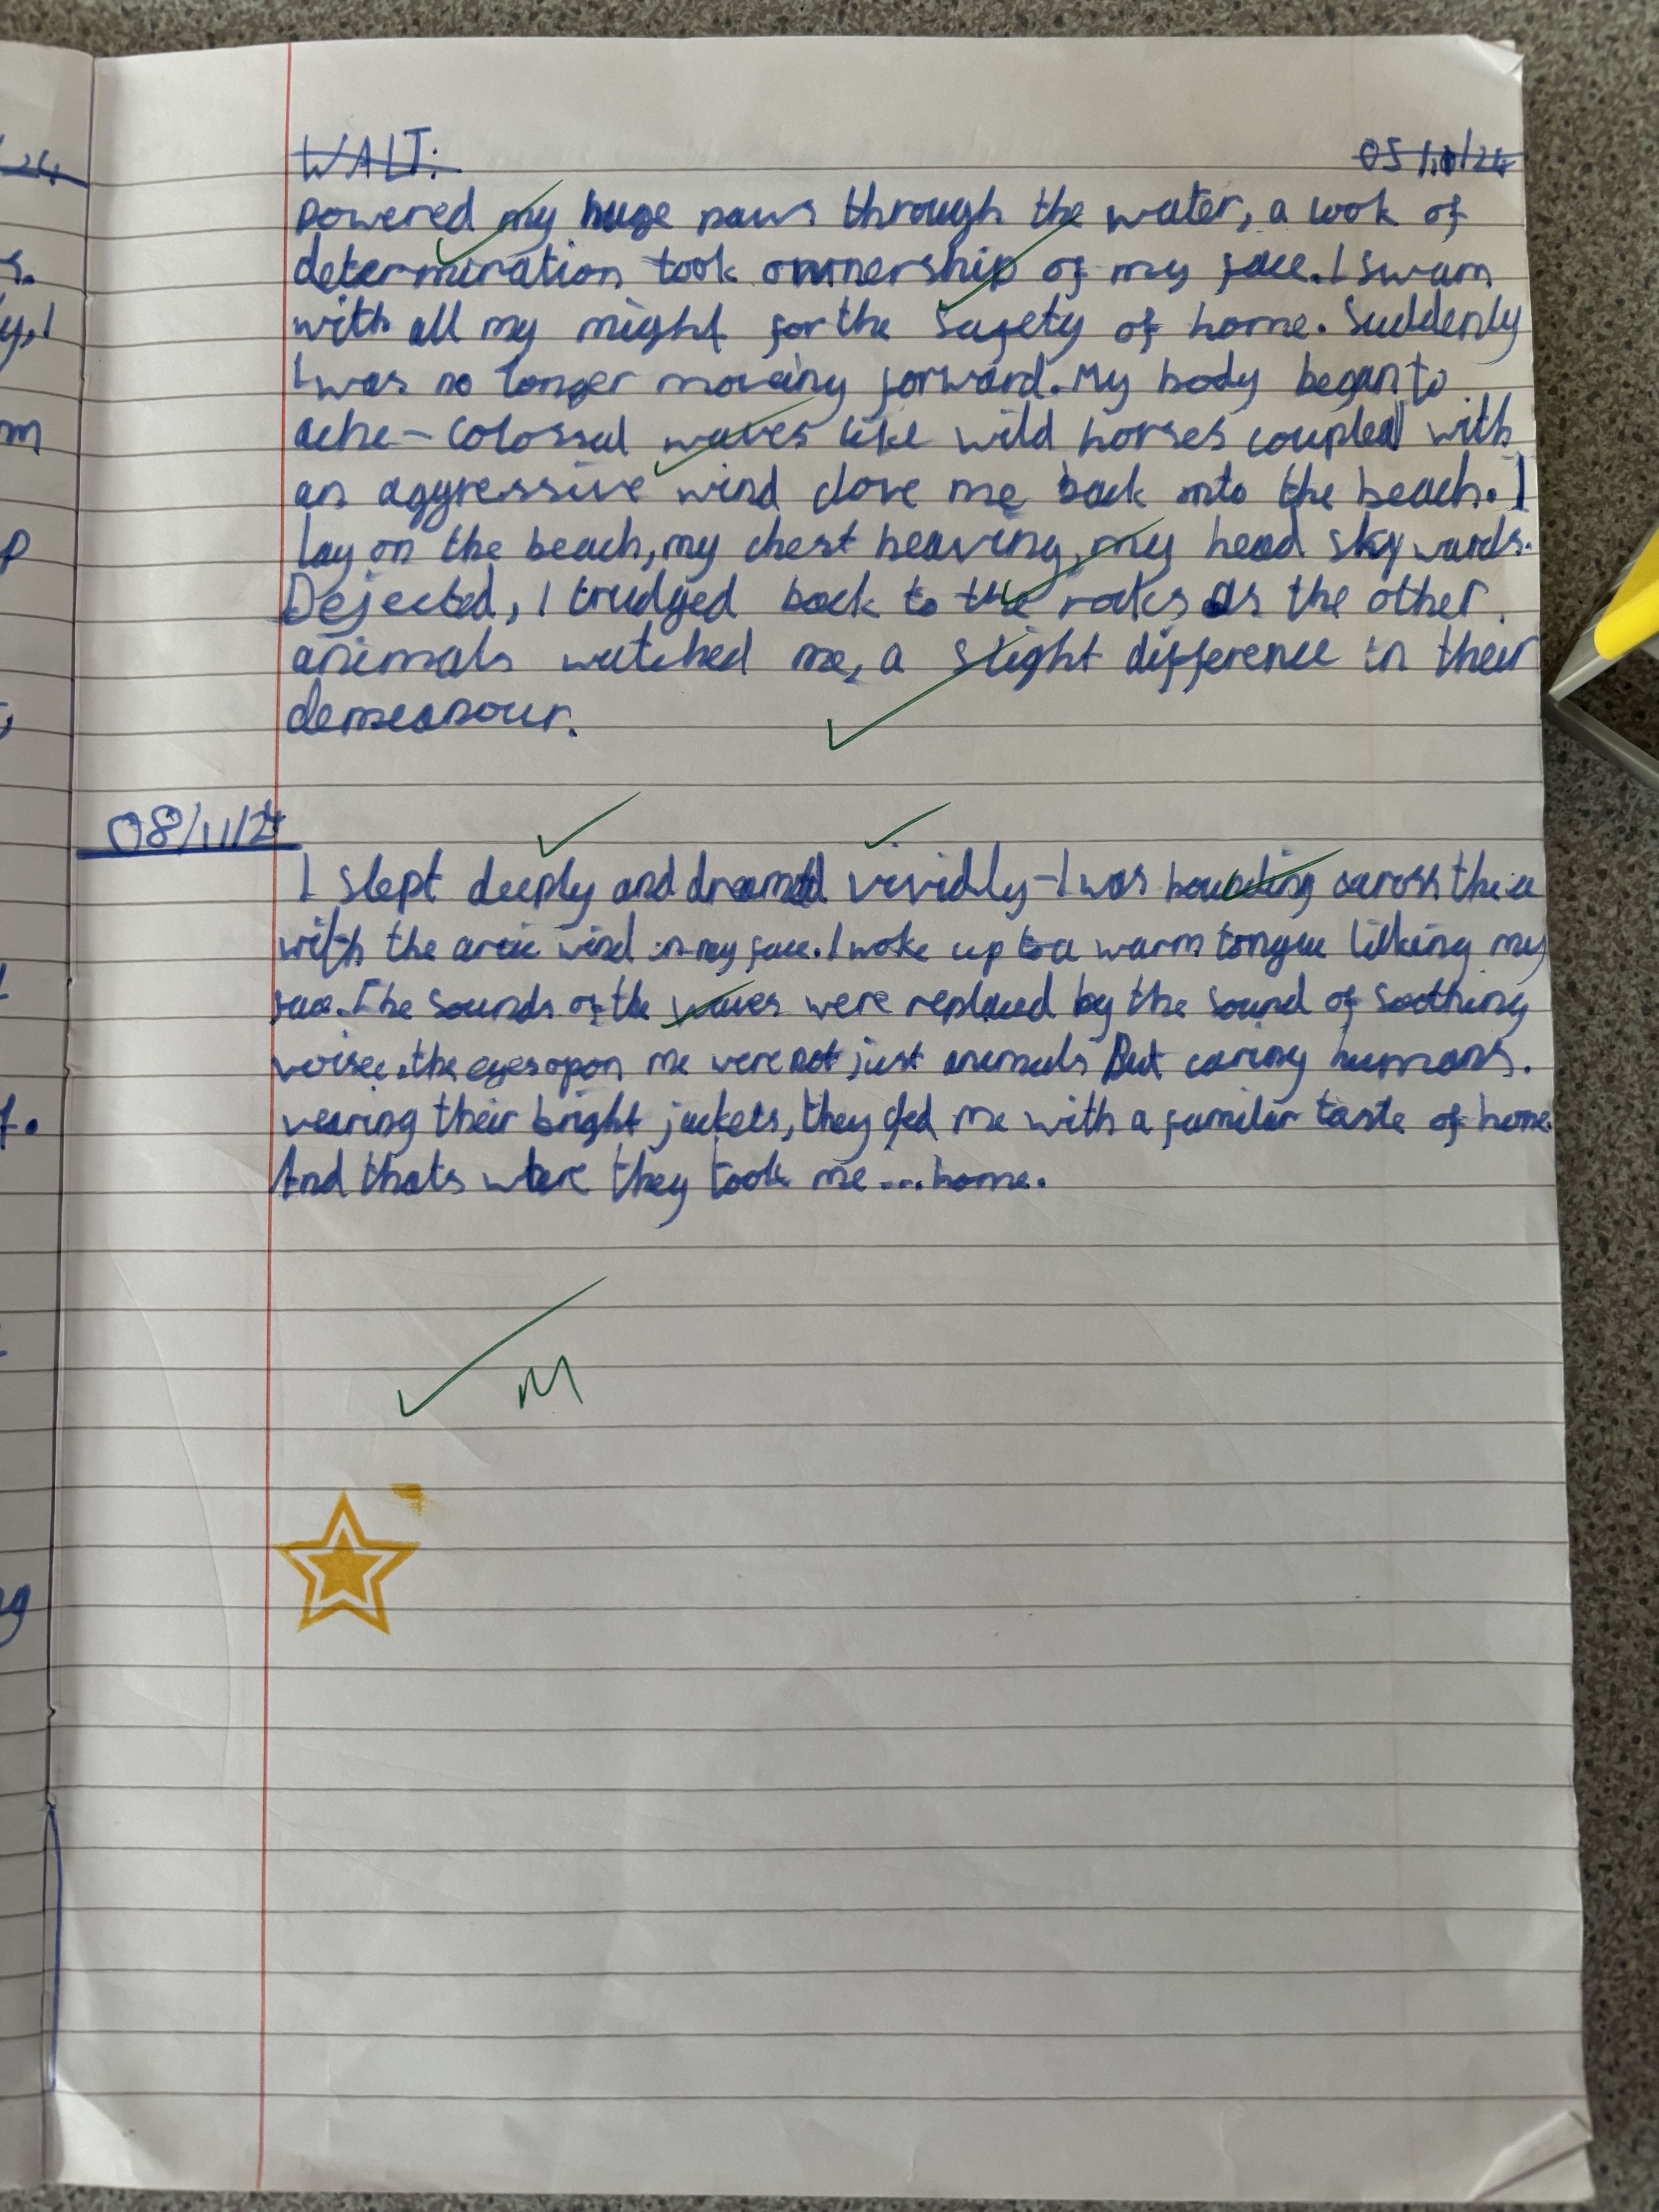 WALT: 05/11/24
powered my huge paws through the water, a look of
determination took ownership of my face. I swam
with all my might for the safety of home. Suddenly
I was no longer moving forward. My body began to
ache - colossal waves like wild horses coupled with
an aggressive wind dove me back onto the beach. I
lay on the beach, my chest heaving, my head skywards.
Dejected, I trudged back to the rocks as the other
animals watched me, a slight difference in their
demeanour.
08/11/24
I slept deeply and dreamt vividly - I was bounding across the ice
with the arctic wind in my face. I woke up to a warm tongue licking my
face. The sounds of the waves were replaced by the sound of soothing
the eyes opon me were not just animals But caring humans.
wearing their bright jackets, they fed me with a familar taste of home.
And thats were they took me... home.
M